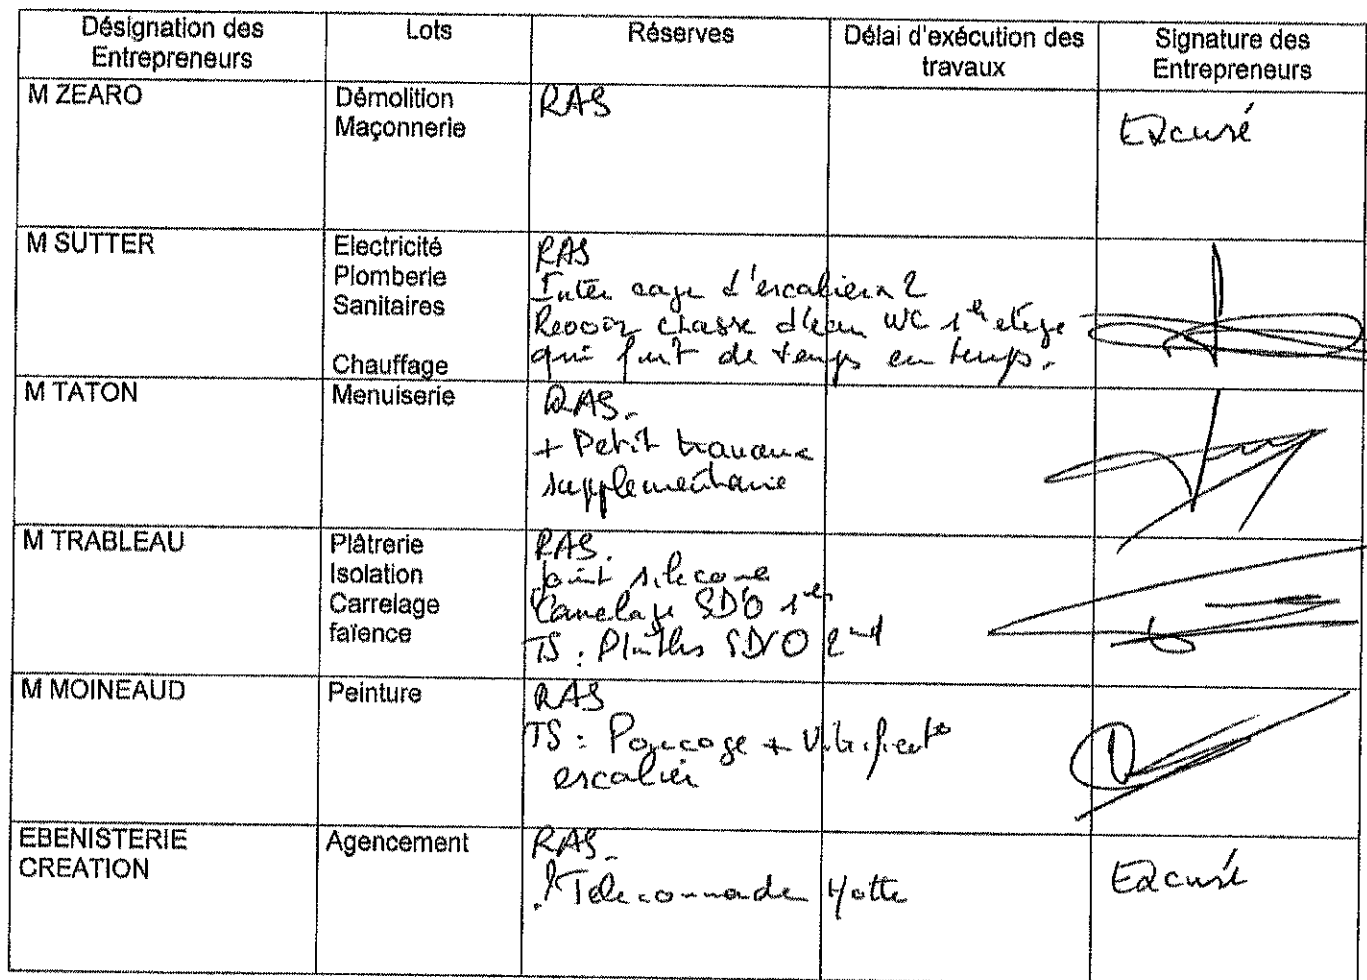 Désignation des Entrepreneurs
Lots
Réserves
Délai d'exécution des travaux
Signature des Entrepreneurs
M ZEARO
Démolition
Maçonnerie
RAS
Excusé
M SUTTER
Electricité
Plomberie
Sanitaires
Chauffage
RAS
Inter cage d'escalier
Revoir chasse d'eau WC 1er etage
qui fuit de temps en temps.
M TATON
Menuiserie
RAS.
+ Petit travaux
supplementaire
M TRABLEAU
Plâtrerie
Isolation
Carrelage
faïence
RAS.
Joint silicone
Carrelage SD'O 1er
TS : Plinthes SD'O 2nd
M MOINEAUD
Peinture
RAS
TS : Ponçage + Vitrificat°
escalier
EBENISTERIE
CREATION
Agencement
RAS.
! Telecommande Hotte
Excusé